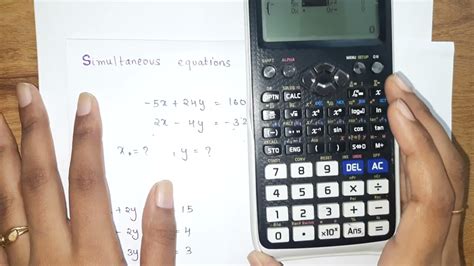 Simultaneous equations
-5x + 24y = 160
2x - 4y = -32
x = ? , y = ?
+ 2y = 15
- y = 4
- 3y = 3
SHIFT ALPHA MENU SETUP ON
OPTN CALC
sin cos tan
STO ENG ( ) S⇔D M+
7 8 9 DEL AC
4 5 6 × ÷
1 2 3 + -
0 . ×10ˣ Ans =